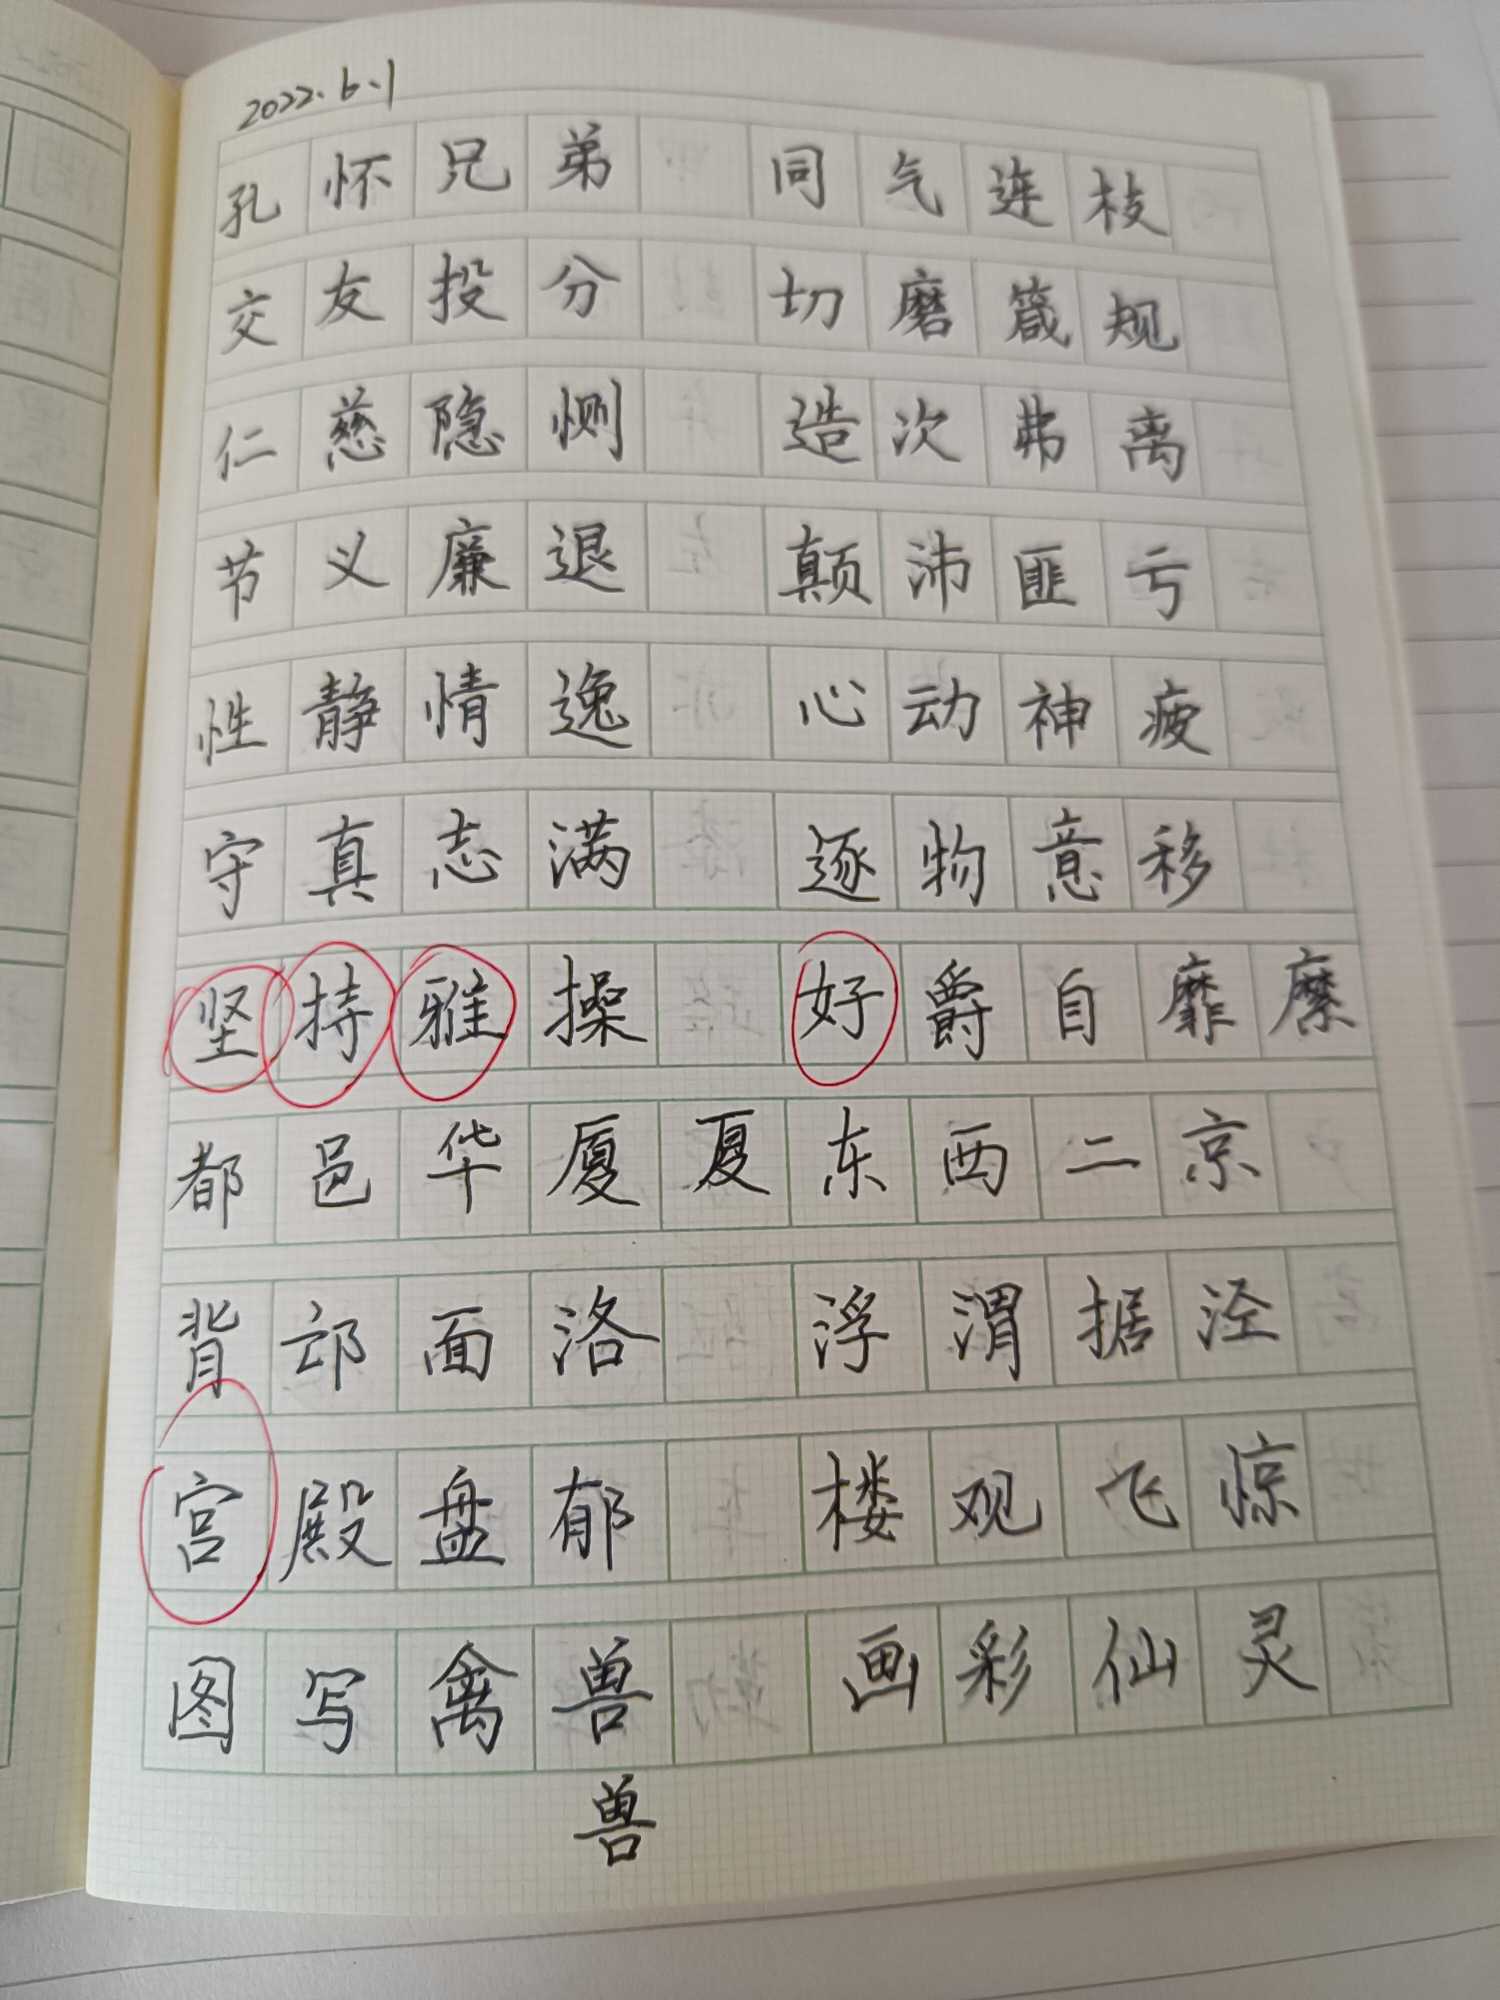 2022.6.1
孔怀兄弟 同气连枝
交友投分 切磨箴规
仁慈隐恻 造次弗离
节义廉退 颠沛匪亏
性静情逸 心动神疲
守真志满 逐物意移
坚持雅操 好爵自靡縻
都邑华厦夏东西二京
背邙面洛 浮渭据泾
宫殿盘郁 楼观飞惊
图写禽兽 画彩仙灵
兽